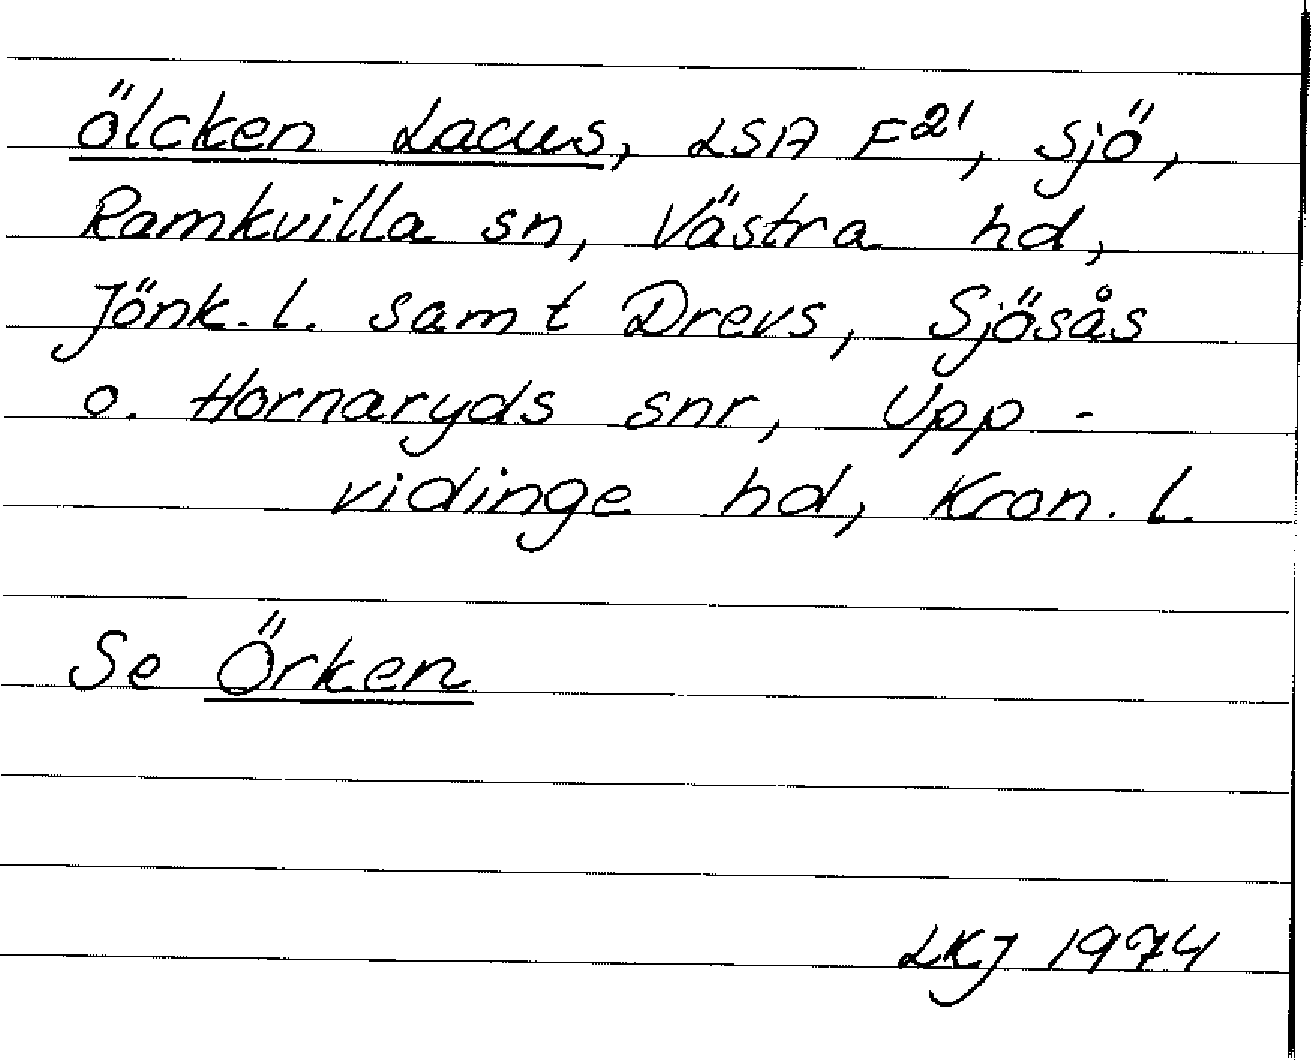 Ölcken Lacus, LSA F21, sjö,
Ramkvilla sn, Västra hd,
Jönk. l. samt Drevs, Sjösås
o. Hornaryds snr, Upp-
vidinge hd, Kron. l.
Se Örken
LKJ 1974